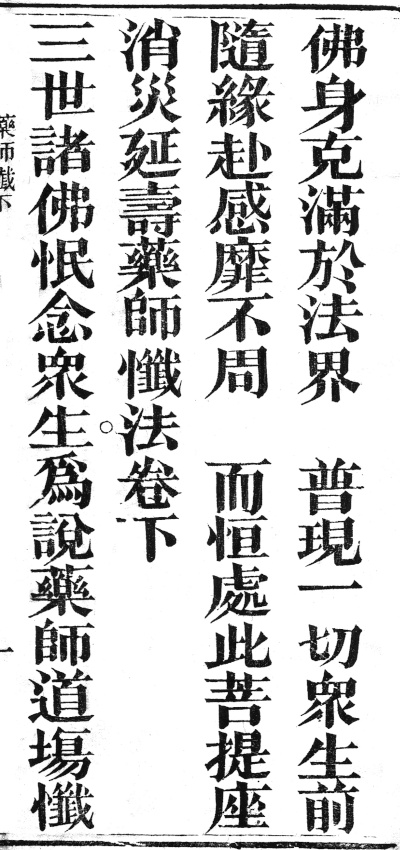 佛身克滿於法界　普現一切衆生前
隨緣赴感靡不周　而恒處此菩提座
消災延壽藥師懺法卷下
三世諸佛怋念衆生。爲說藥師道場懺
藥師懺下
一